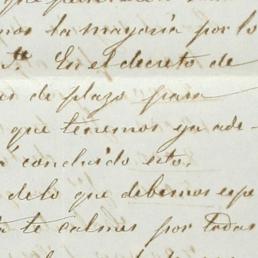 que
mos la mayoría por lo
te. En el decreto de
de plazo para
que tenemos ya ade-
concluido esto.
delo que debemos espe
te calmes por todas